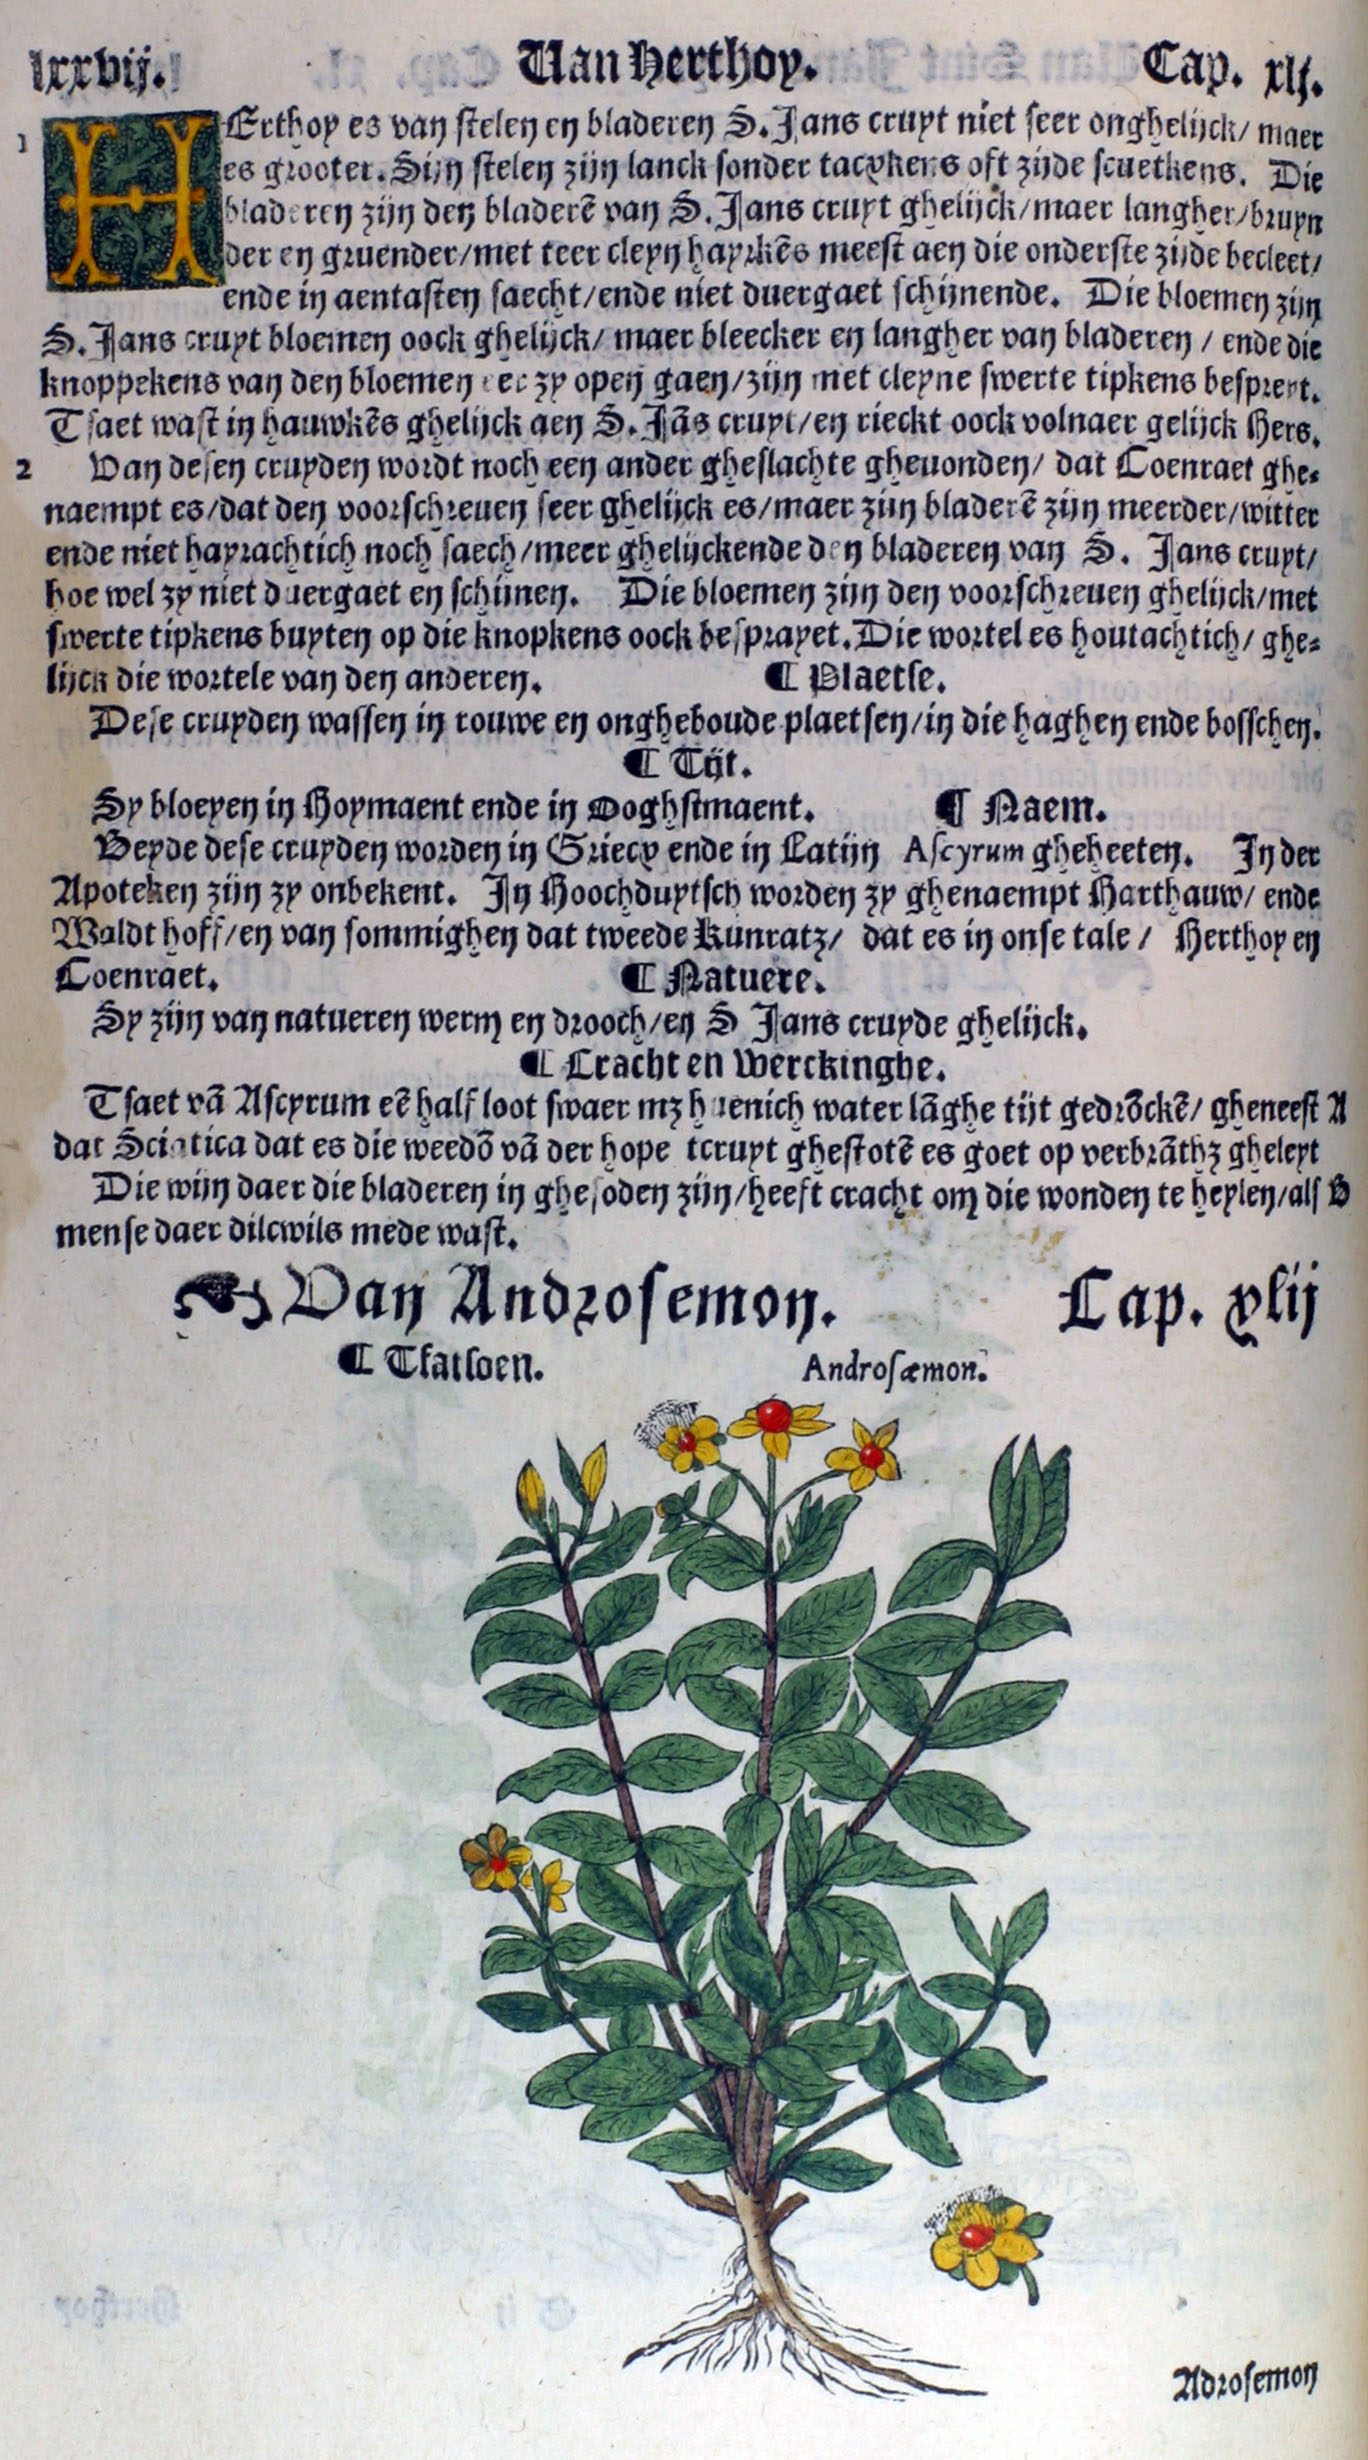 lxxvij. Van Herthoy. Cap. xli.
1 HErthoy es van stelen en bladeren S. Jans cruyt niet seer onghelijck/ maer
es grooter. Sijn stelen zijn lanck sonder tacxkens oft zijde scuetkens. Die
bladeren zijn den bladerē van S. Jans cruyt ghelijck/maer langher/bruyn
der en gruender/met teer cleyn hayrkēs meest aen die onderste zijde becleet/
ende in aentasten saecht/ende niet duergaet schijnende. Die bloemen zijn
S. Jans cruyt bloemen oock ghelijck/ maer bleecker en langher van bladeren / ende die
knoppekens van den bloemen eer zy open gaen/zijn met cleyne swerte tipkens bespreyt.
Tsaet wast in hauwkēs ghelijck aen S. Jās cruyt/en rieckt oock volnaer gelijck Hers.
2 Van desen cruyden wordt noch een ander gheslachte gheuonden/ dat Coenraet ghe-
naempt es/dat den voorschreuen seer ghelijck es/maer zijn bladerē zijn meerder/witter
ende niet hayrachtich noch saech/meer ghelijckende den bladeren van S. Jans cruyt/
hoe wel zy niet duergaet en schijnen. Die bloemen zijn den voorschreuen ghelijck/met
swerte tipkens buyten op die knopkens oock besprayet. Die wortel es houtachtich/ ghe-
lijck die wortele van den anderen. ¶ Plaetse.
Dese cruyden wassen in rouwe en ongheboude plaetsen/in die haghen ende bosschen.
¶ Tijt.
Sy bloeyen in Hoymaent ende in Ooghstmaent. ¶ Naem.
Beyde dese cruyden worden in Griecx ende in Latijn Ascyrum gheheeten. In der
Apoteken zijn zy onbekent. In Hoochduytsch worden zy ghenaempt Harthauw/ ende
Waldt hoff/en van sommighen dat tweede Kunratz/ dat es in onse tale / Herthoy en
Coenraet. ¶ Natuere.
Sy zijn van natueren werm en drooch/en S Jans cruyde ghelijck.
¶ Cracht en Werckinghe.
Tsaet vā Ascyrum eē half loot swaer mz huenich water lāghe tijt gedrōckē/ gheneest A
dat Sciatica dat es die weedō vā der hope tcruyt ghestotē es goet op verbrāthz gheleyt
Die wijn daer die bladeren in ghesoden zijn/heeft cracht om die wonden te heylen/als B
mense daer dilcwils mede wast.
Van Androsemon. Cap. xlij
¶ Tfatsoen. Androsæmon.
Adrosemon